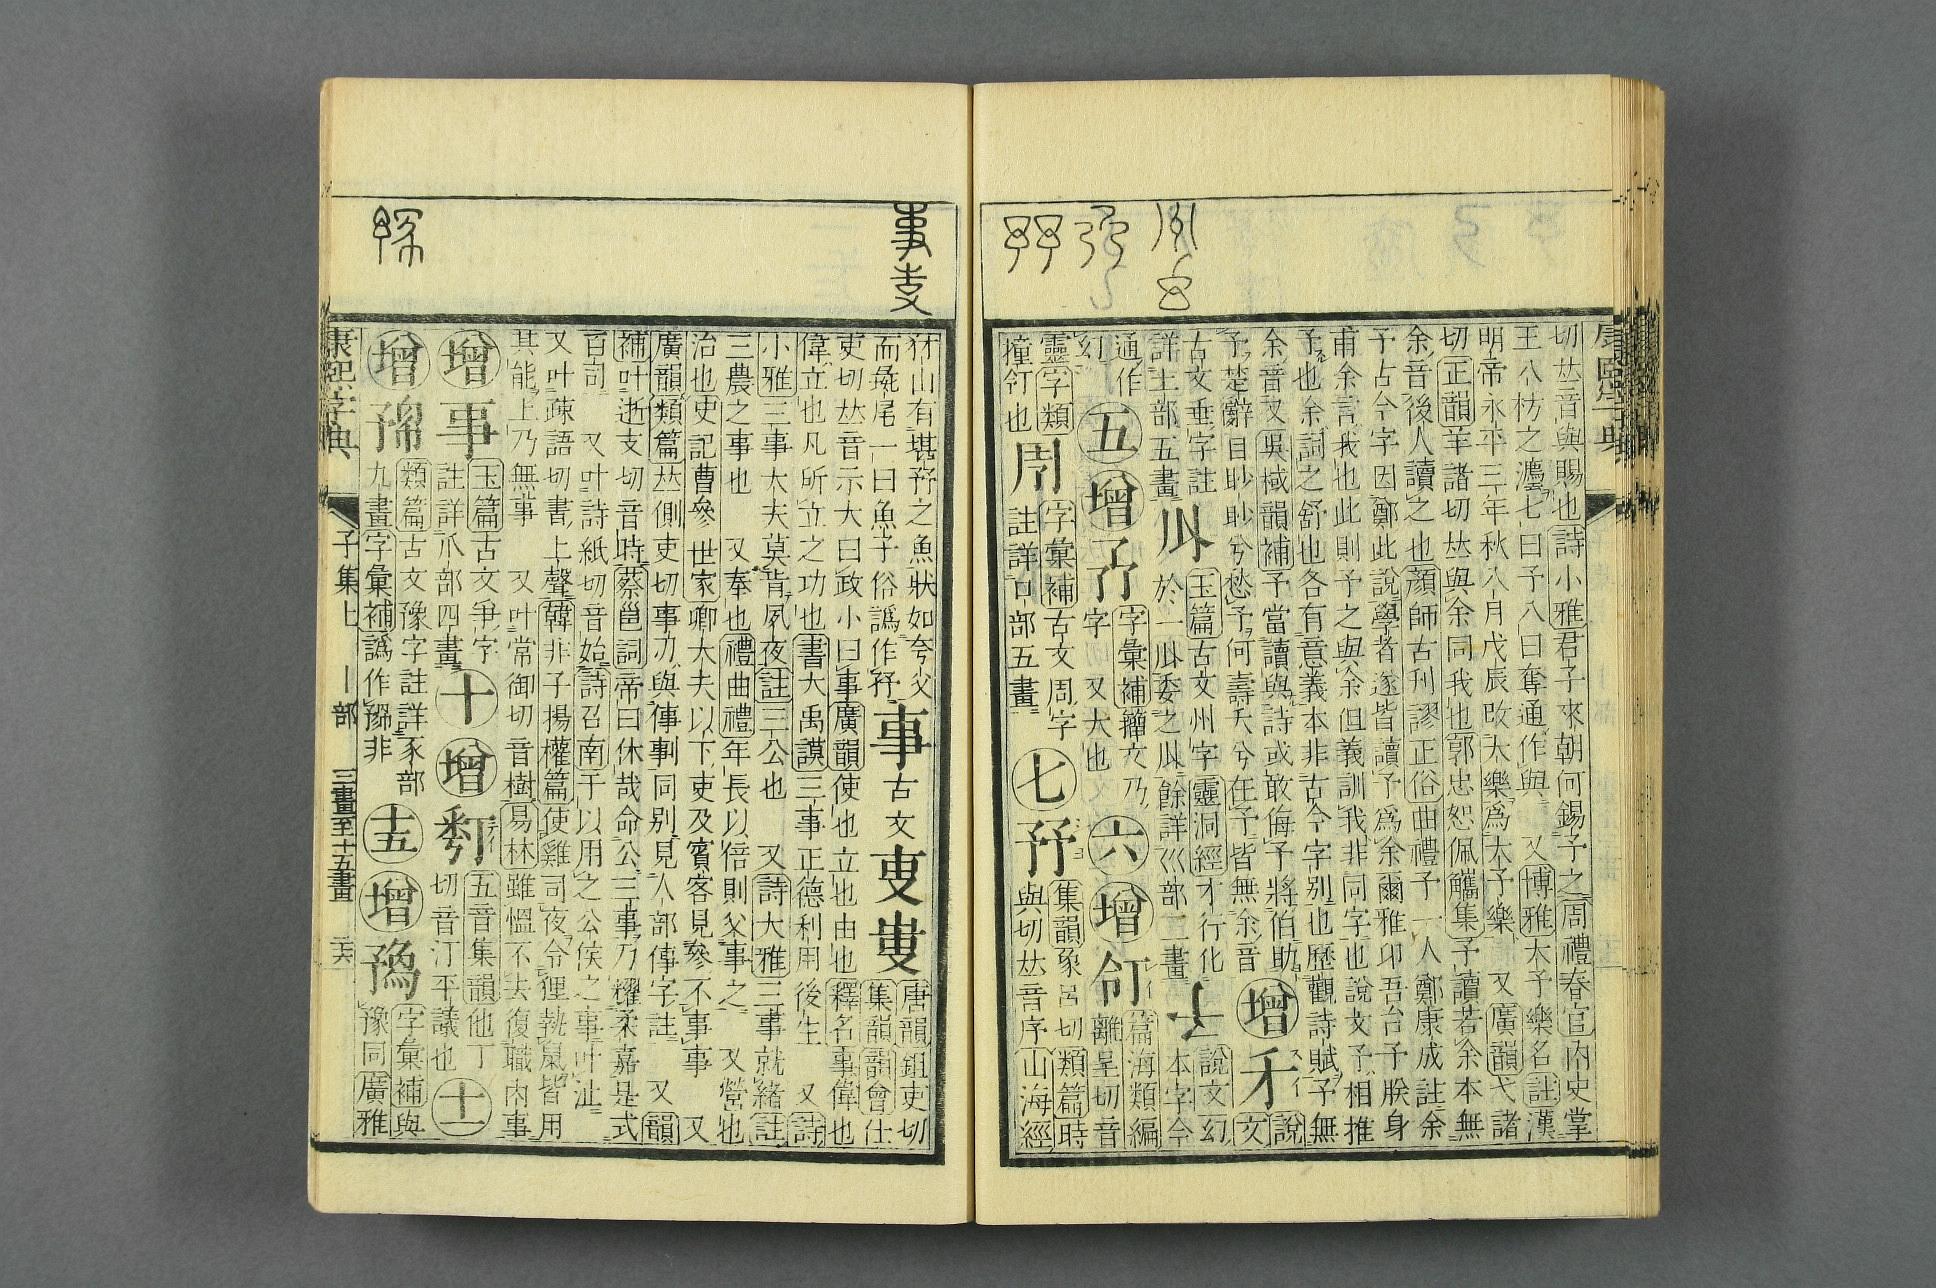 切𠀤音與賜也詩小雅君子來朝何錫予之周禮春官內史掌
王八枋之灋七曰予八曰奪通作與 又博雅大予樂名註漢
明帝永平三年秋八月戊辰改大樂爲大予樂 又廣韻弋諸
切正韻羊諸切𠀤與余同我也郭忠恕佩觿集予讀若余本無
余音後人讀之也顏師古刊謬正俗曲禮予一人鄭康成註余
予古今字因鄭此說學者遂皆讀予爲余爾雅卬吾台予朕身
甫余言我也此則予之與余但義訓我非同字也說文予相推
予也余詞之舒也各有意義本非古今字別也歷觀詩賦予無
余音又吳棫韻補予當讀與詩或敢侮予將伯助
予楚辭目眇眇兮愁予何壽夭兮在予皆無余音
增
說文幻
古文垂字註
詳土部五畫
玉篇古文州字靈洞經才行化
於一𠂢委之𠂢餘詳巛部二畫
說文幻
本字今
通作
幻
五
增
字彙補籀文乃
字又大也
六
增
篇海類編
離呈切音
靈字類
撞𠆲也
字彙補古文周字
註詳口部五畫
七
集韻象呂切類篇時
與切𠀤音序山海經
犲山有堪㐨之魚狀如夸父
而彘尾一曰魚子俗譌作
事
古文
唐韻鉏吏切
集韻韻會仕
吏切𠀤音示大曰政小曰事廣韻使也立也由也釋名事偉也
偉立也凡所立之功也書大禹謨三事正德利用後生 又詩
小雅三事大夫莫肯夙夜註三公也 又詩大雅三事就緒註
三農之事也 又奉也禮曲禮年長以倍則父事之 又營也
治也史記曹參世家卿大夫以下吏及賓客見參不事事 又
廣韻類篇𠀤側吏切事刃與傳剚同別見人部傳字註 又韻
補叶逝支切音時蔡邕詞帝曰休哉命公三事乃耀柔嘉是式
百司 又叶詩紙切音始詩召南于以用之公侯之事叶沚
又叶疎語切書上聲韓非子揚權篇使雞司夜令狸執鼠皆用
其能上乃無事 又叶常御切音樹易林雖慍不去復職內事
增
事
玉篇古文爭字
註詳爪部四畫
十
增
五音集韻他丁
切音汀平議也
十一
增
類篇古文豫字註詳豕部
九畫字彙補譌作非
十五
增
字彙補與
豫同廣雅
康熙字典 子集上 亅部 三畫至十五畫